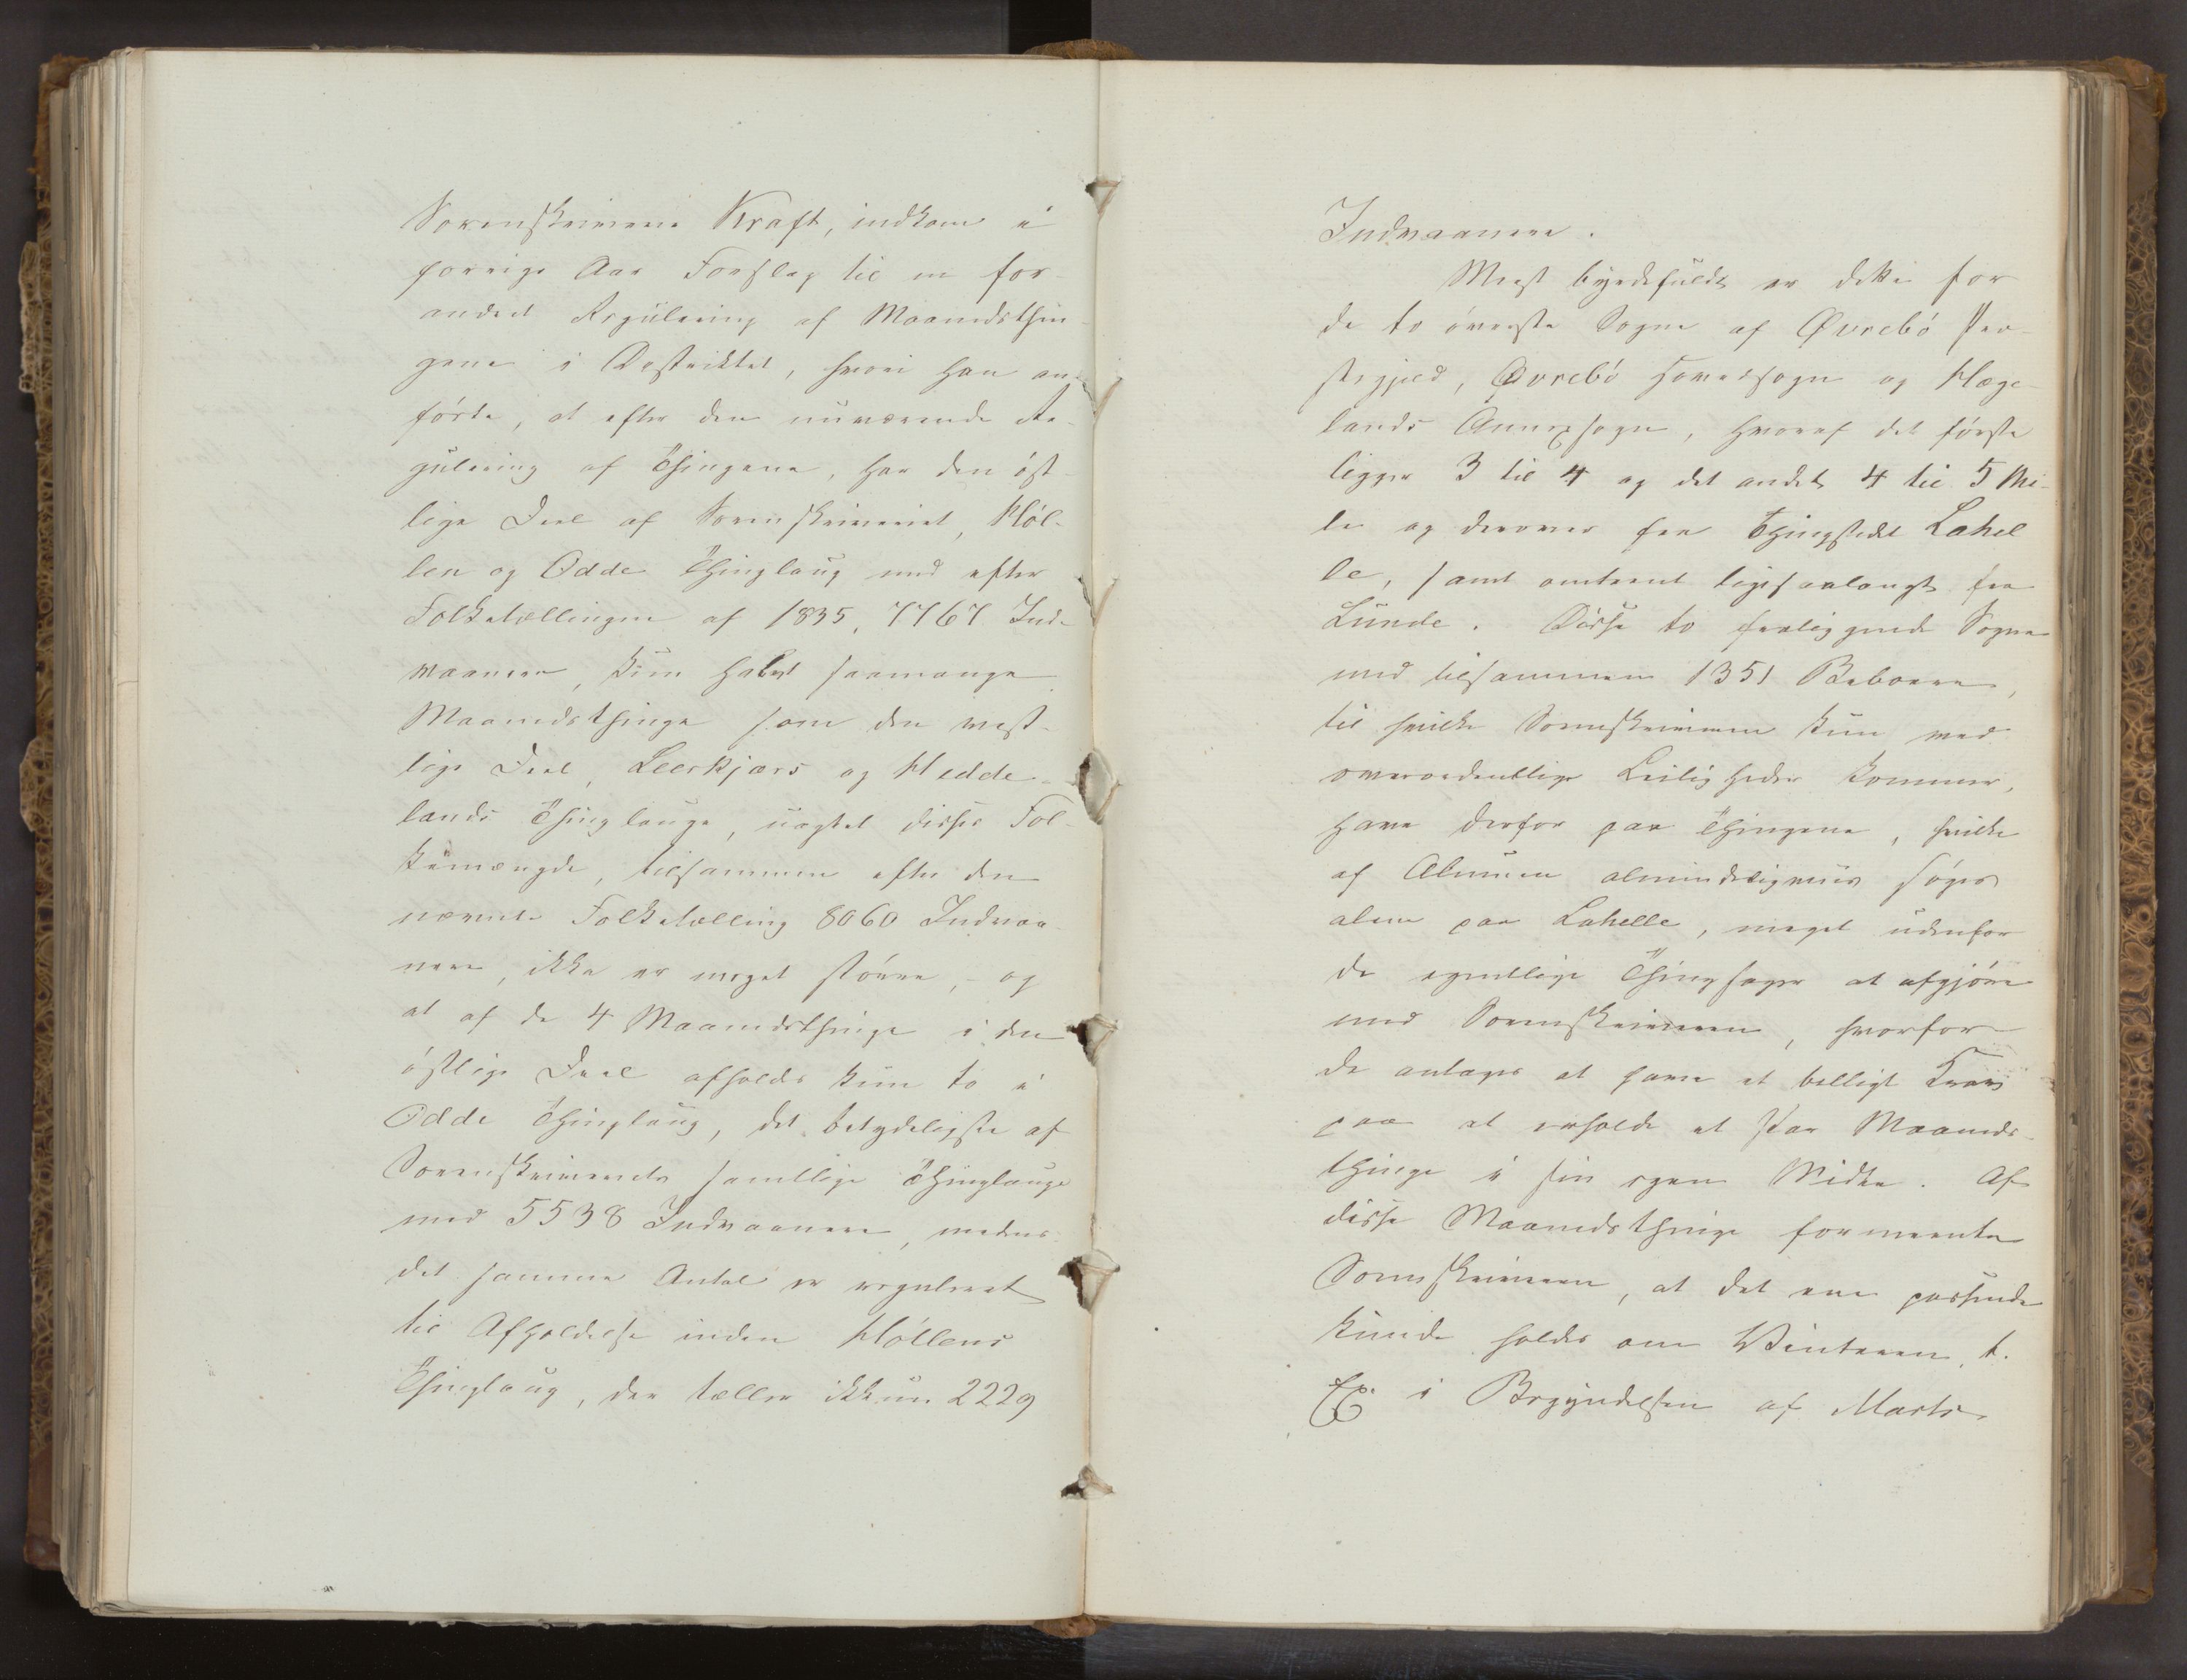 Sorenskriveren Kraft, indkom i
forrige Aar Forslag til en for-
andret Regulering af Maanedsthin-
gene i Distriktet, hvori han an-
förte, at efter den nuværende Re-
gulering af Thingene, har den öst-
lige Deel af Sorenskriveriet, Höl-
len og Odde Thinglaug med efter
Folketællingen af 1835, 7767 Ind-
vaanere, kun halvt saamange
Maanedsthinge som den vest-
lige Deel, Leerkjærs og Hedde-
lands Thinglauge, uagtet disses Fol-
kemængde, tilsammen efter den
nævnte Folketælling 8060 Indvaa-
nere, ikke er meget större, - og
at af de 4 Maanedsthinge i den
östlige Deel afholdes kun to i
Odde Thinglaug, det betydeligste af
Sorenskriveriets samtlige Thinglauge
med 5538 Indvaanere, medens
det samme Antal er reguleret
til Afholdelse inden Höllens
Thinglaug, der tæller ikkun 2229
Indvaanere.
Meest byrdefuldt er dette for
de to överste Sogne af Øvrebö Præ-
stegjeld, Øvrebö Hovedsogn og Hæge-
lands Annexsogn, hvoraf det förste
ligger 3 til 4 og det andet 4 til 5 Mi-
le og derover fra Thingstedet Lahel
le, samt omtrent ligesaalangt fra
Lunde. Disse to fraliggende Sogne
med tilsammen 1351 Beboere,
til hvilke Sorenskriveren kun ved
overordentlige Leiligheder kommer,
have derfor paa Thingene, hvilke
af Almuen almindeligviis söges
alene paa Lahelle, meget udenfor
de egentlige Thingsager at afgjöre
med Sorenskriveren, hvorfor
de antages at have et billigt Krav
paa at erholde et Par Maaneds-
thinge i sin egen Midte. Af
disse Maanedsthinge formeente
Sorenskriveren, at det ene passende
kunde holdes om Vinteren, t.
Ex. i Begyndelsen af Marts